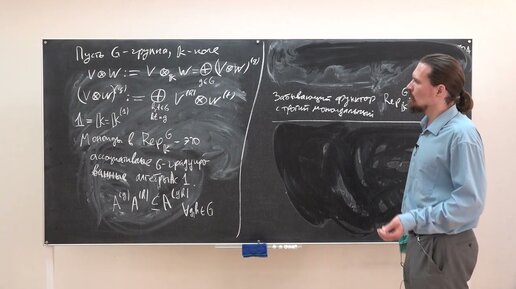 Пусть G-группа, k-поле
V⊗W := V⊗_k W = ⊕_{g∈G} (V⊗W)^{(g)}
(V⊗W)^{(g)} := ⊕_{h,t∈G, ht=g} V^{(h)}⊗W^{(t)}
𝟙 = k = k^{(1)}
Моноиды в Rep_k^G - это
ассоциативные G-градуиро-
ванные алгебры с 1.
A^{(g)}A^{(h)} ⊆ A^{(gh)} ∀g,h∈G
Забывающий функтор Rep_k^G
строгий моноидальный